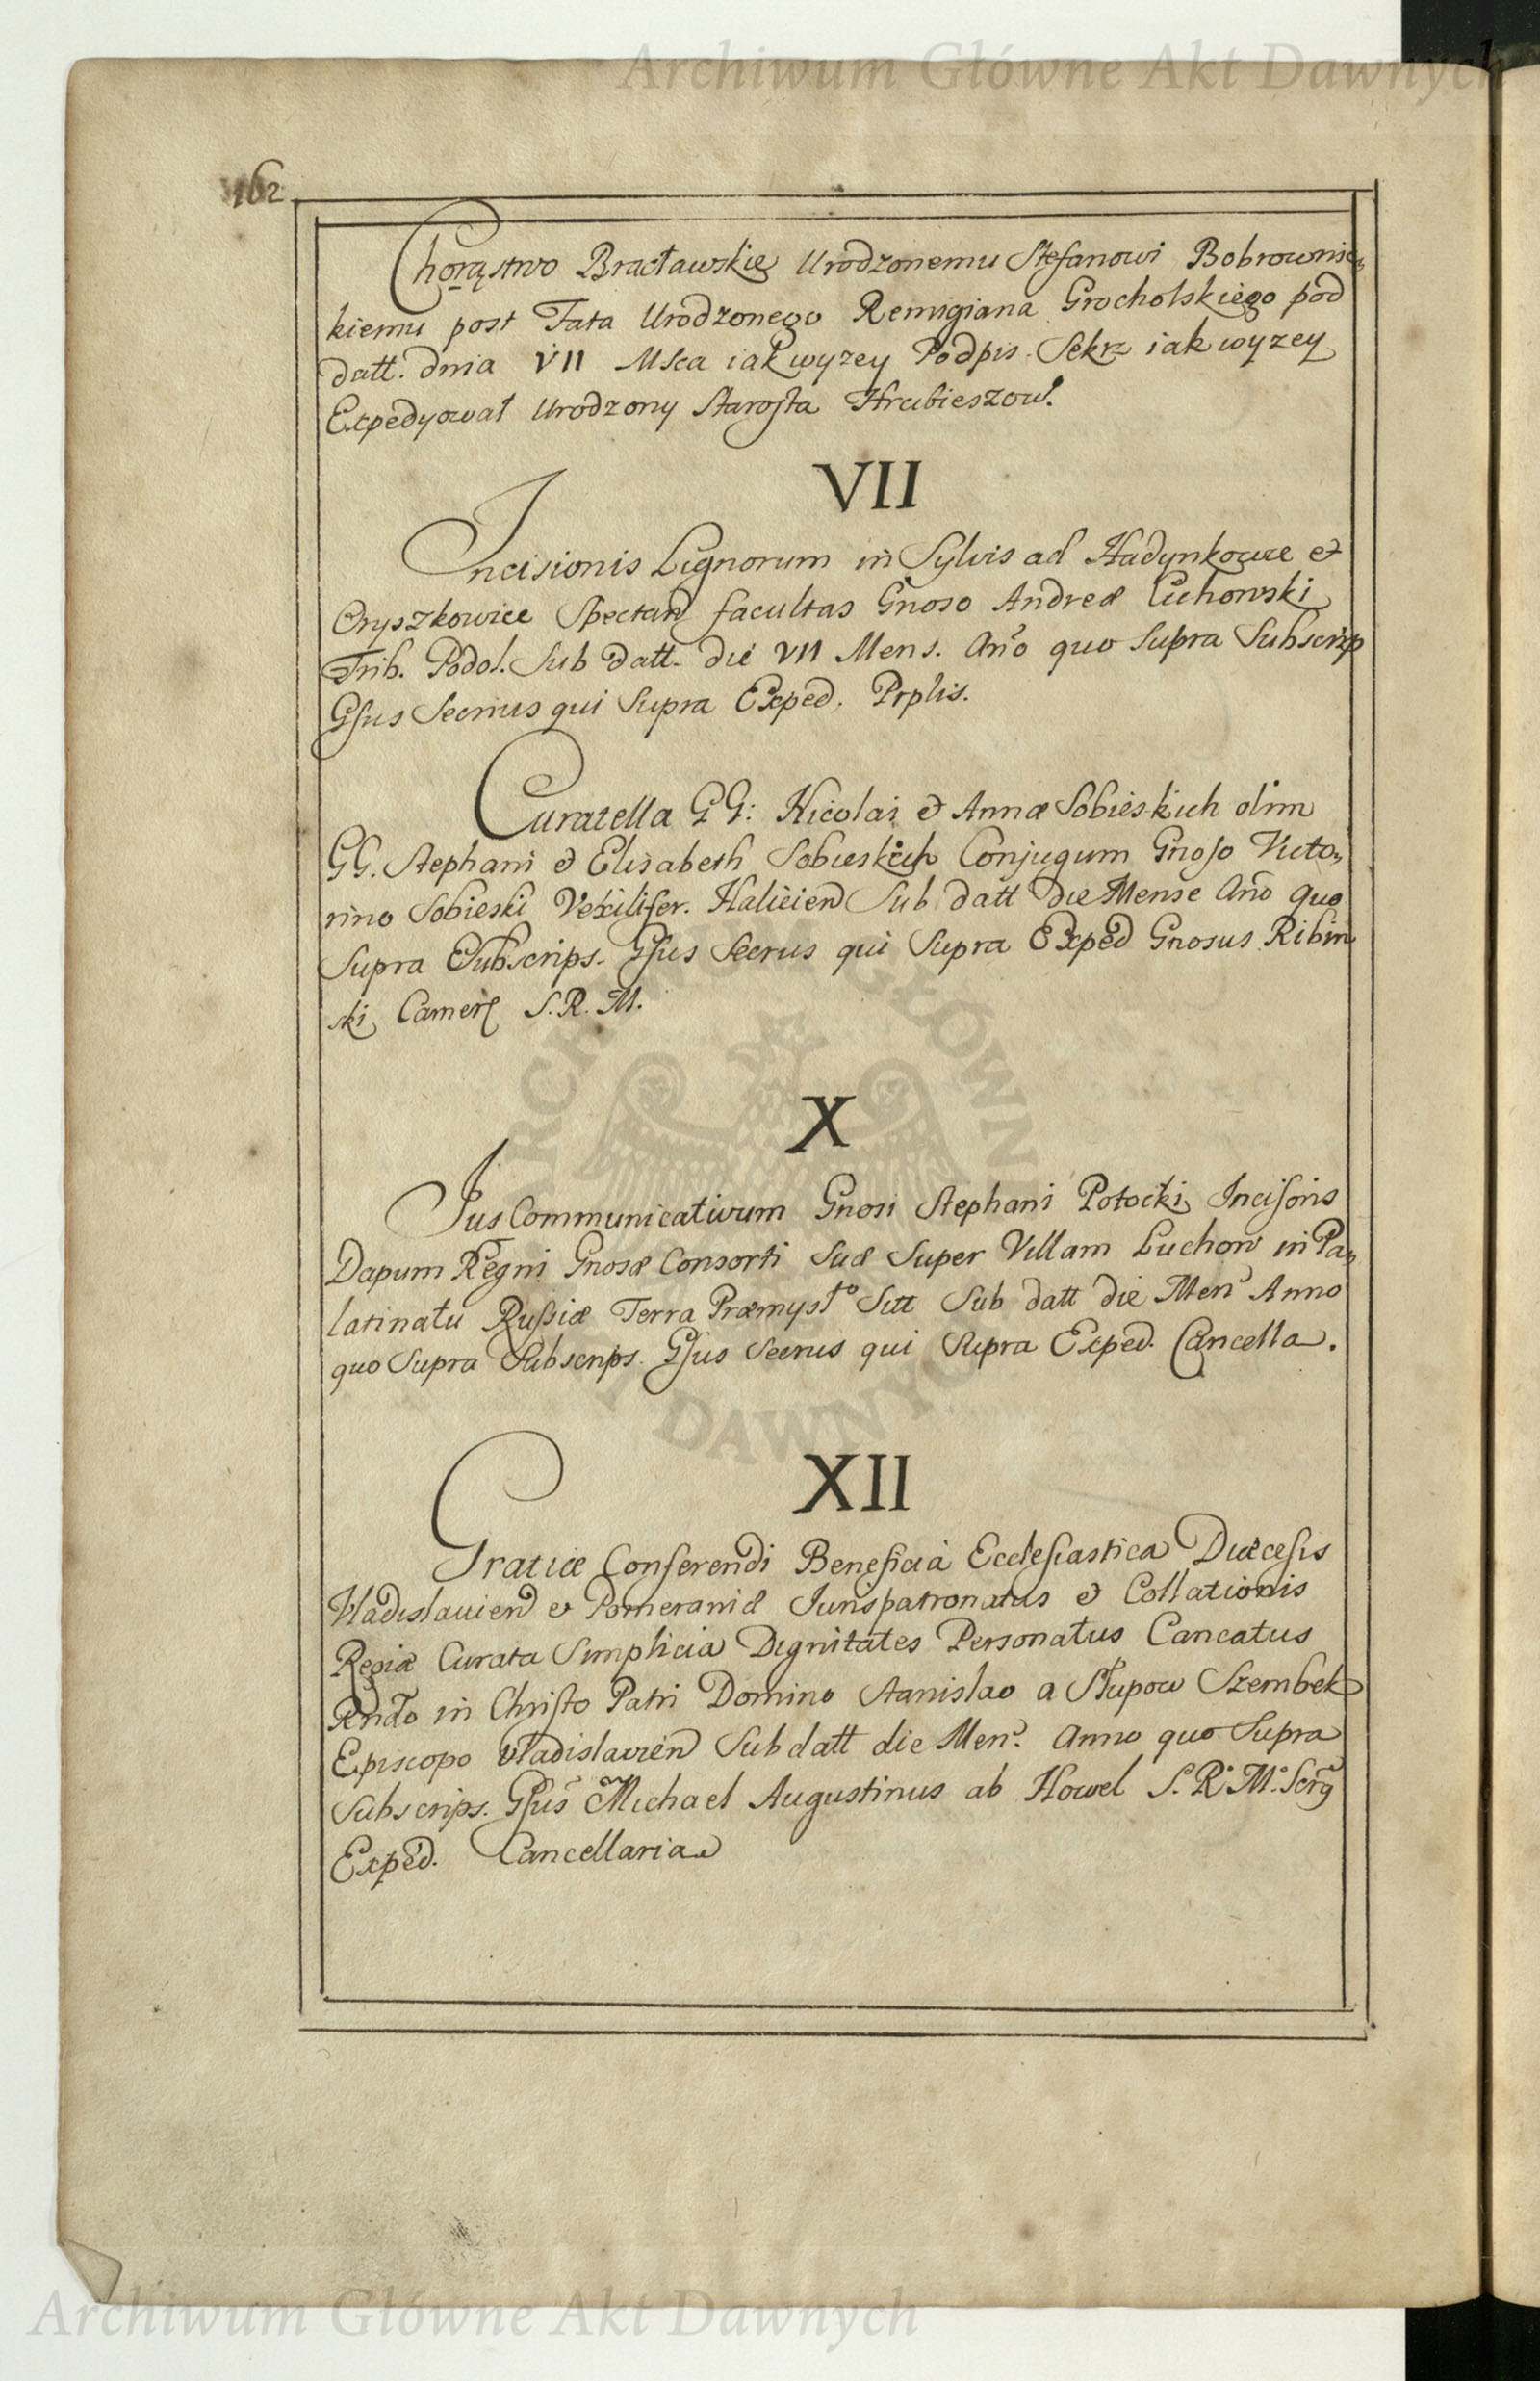 Archiwum Główne Akt Dawnych
162
Chorąstwo Bracławskie Urodzonemu Stefanowi Bobrownic„
kiemu post Fata Urodzonego Remigiana Grocholskiego pod
datt. dnia VII Msca iak wyzey Podpis. Sekrz iak wyzey
Expedyował Urodzony Starosta Hrubieszow.
VII
Incisionis Lignorum in Sylvis ad Hadynkowce et
Oryszkowice Spectan facultas Gnoso Andreæ Cichowski
Trib. Podol. Sub datt. die VII Mens. Ano quo Supra Subscrip
Gsus Secrius qui Supra Exped. Prplis.
Curatella GG: Nicolai & Annæ Sobieskich olim
GG. Stephani & Elisabeth Sobieskich Conjugum Gnoso Victo„
rino Sobieski Vexilifer. Halicien Sub datt die Mense Ano quo
Supra Subscrips. Gsus Secrus qui Supra Exped Gnosus Ribin
ski Camer S. R. M.
X
Jus Communicativum Gnosi Stephani Potocki Incisoris
Dapum Regni Gnosæ Consorti Suæ Super Villam Luchow in Pa„
latinatu Russiæ Terra Præmysl Sitt Sub datt die Men Anno
quo Supra Subscrips. Gsus Secrus qui Supra Exped. Cancella.
XII
Gratiæ Conferendi Beneficia Ecclesiastica Diæcesis
Vladislavien & Pomeraniæ Jurispatronatus & Collationis
Regiæ Curata Simplicia Dignitates Personatus Cancatus
Rndo in Christo Patri Domino Stanislao a Słupow Szembek
Episcopo Vladislavien Sub datt die Men. Anno quo Supra
Subscrips. Gsus Michael Augustinus ab Howel S. R. M. Scrg
Exped. Cancellaria
Archiwum Główne Akt Dawnych